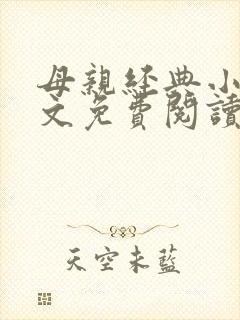 母親經典小
文免費閱讀
天空未藍